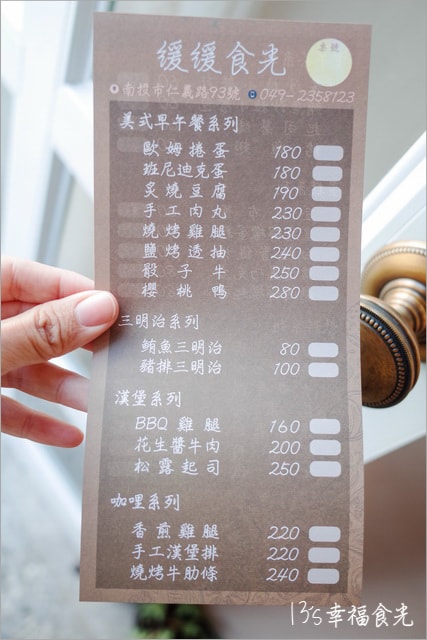 緩緩食光
桌號
南投市仁義路93號 049-2358123
美式早午餐系列
歐姆捲蛋 180
班尼迪克蛋 180
炙燒豆腐 190
手工肉丸 230
燒烤雞腿 230
鹽烤透抽 240
骰子牛 250
櫻桃鴨 280
三明治系列
鮪魚三明治 80
豬排三明治 100
漢堡系列
BBQ雞腿 160
花生醬牛肉 200
松露起司 250
咖哩系列
香煎雞腿 220
手工漢堡排 220
燒烤牛肋條 240
13's幸福食光